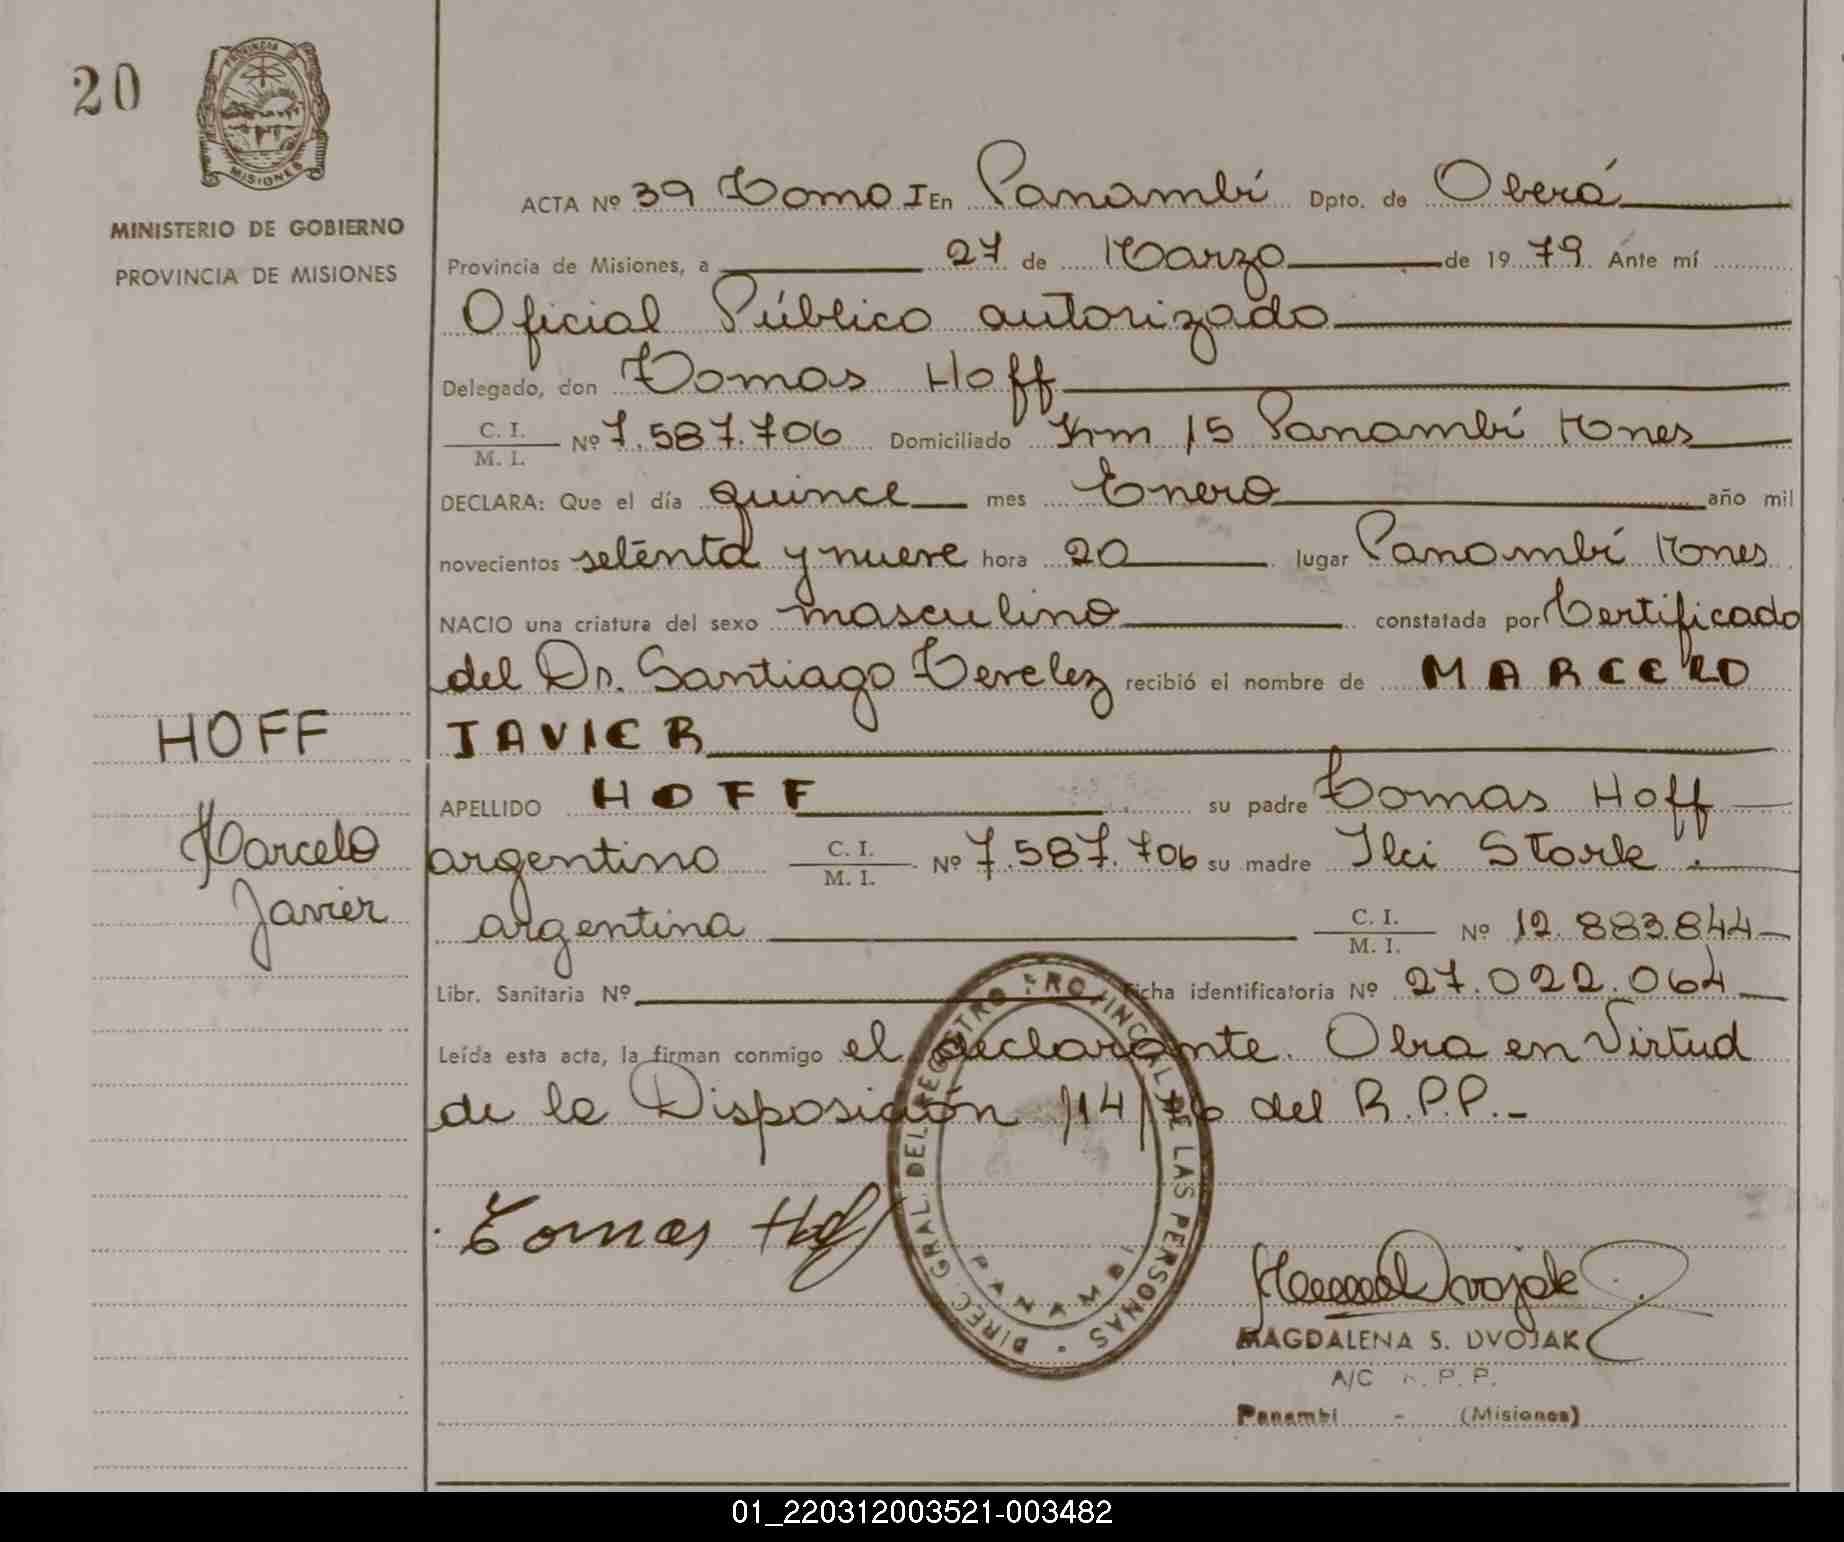 20
PROVINCIA
MISIONES
MINISTERIO DE GOBIERNO
PROVINCIA DE MISIONES
ACTA Nº 39 Tomo I En Panambí Dpto. de Oberá
Provincia de Misiones, a 27 de Marzo de 1979 Ante mí
Oficial Público autorizado
Delegado, don Tomas Hoff
C. I. / M. I. Nº 7.587.706 Domiciliado Km 15 Panambí Mnes
DECLARA: Que el día quince mes Enero año mil
novecientos setenta y nueve hora 20 lugar Panambí Mnes
NACIO una criatura del sexo masculino constatada por Certificado
del Dr. Santiago recibió el nombre de MARCELO
JAVIER
HOFF
APELLIDO HOFF su padre Tomas Hoff
Marcelo
argentino C. I. / M. I. Nº 7.587.706 su madre Ilci Stork.
Javier
argentina C. I. / M. I. Nº 12.883.844
Libr. Sanitaria Nº Ficha identificatoria Nº 27.022.064
Leída esta acta, la firman conmigo el declarante. Obra en Virtud
de la Disposición 114/76 del R.P.P.-
DIREC. GRAL. DEL REGISTRO PROVINCIAL DE LAS PERSONAS
PANAMBI
Tomas Hoff
MAGDALENA S. DVOJAK
A/C R. P. P.
Panambí - (Misiones)
01_220312003521-003482